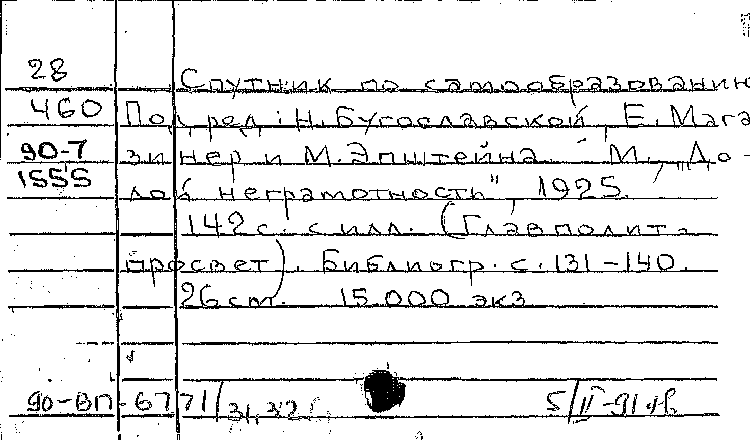 28 Спутник по самообразованию
460 Под ред.: Н. Бугославской, Е. Мага
90-7 зинер и М. Эпштейна. - М., "До-
1555 лой неграмотность", 1925.
142 с. с илл. (Главполит-
просвет). Библиогр. с. 131-140.
26 cm. 15.000 экз
90-ВП-6771/31,32 5/II-91